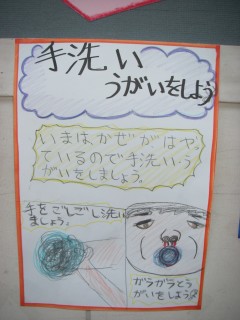 手洗い
うがいをしよう
いまはかぜがはや
ているので手洗いう
がいをしましょう。
手をごしごし洗い
ましょう。
ガラガラとう
がいをしよう